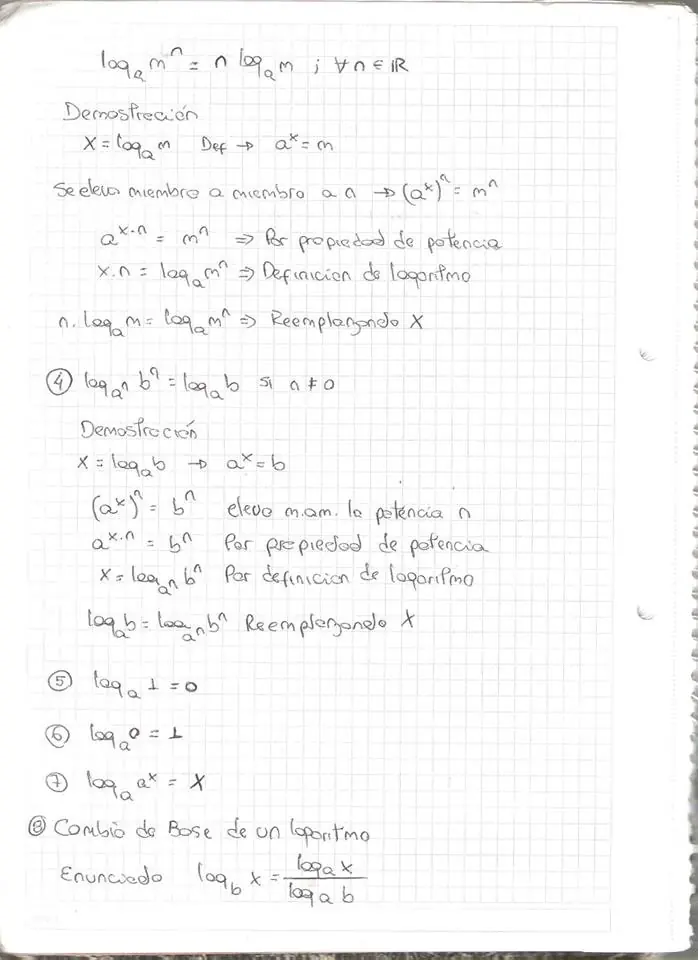 logₐ mⁿ = n logₐ m ; ∀ n ∈ ℝ
Demostración
x = logₐ m Def → aˣ = m
Se eleva miembro a miembro a n → (aˣ)ⁿ = mⁿ
a^(x·n) = mⁿ ⇒ Por propiedad de potencia
x·n = logₐ mⁿ ⇒ Definicion de logaritmo
n. logₐ m = logₐ mⁿ ⇒ Reemplanzando x
④ log_(aⁿ) bⁿ = logₐ b si n ≠ 0
Demostración
x = logₐ b → aˣ = b
(aˣ)ⁿ = bⁿ elevo m.am. la potencia n
a^(x·n) = bⁿ Por propiedad de potencia
x = log_(aⁿ) bⁿ Por definicion de logaritmo
logₐ b = log_(aⁿ) bⁿ Reemplanzando x
⑤ logₐ 1 = 0
⑥ logₐ 0 = 1
⑦ logₐ aˣ = x
⑧ Cambio de Base de un logaritmo
Enunciado log_b x = logₐ x / logₐ b